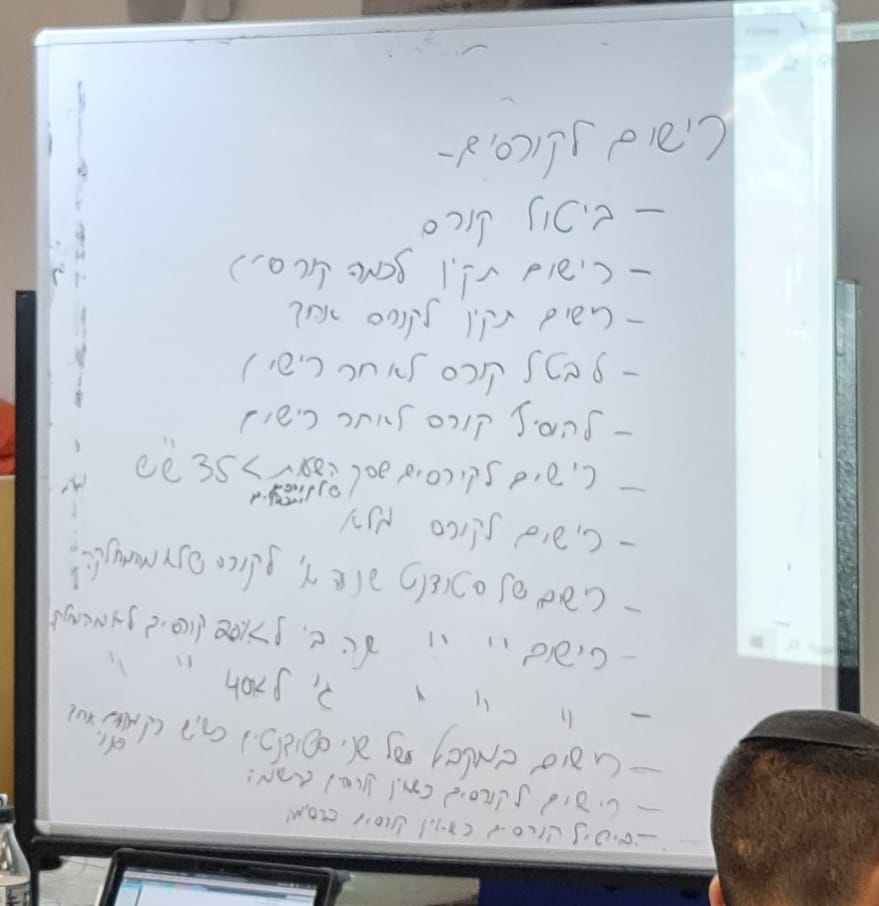 רישום לקורסים-
- ביטול קורס
- רישום תקין לכמה קורס
- רישום תקין לקורס אחד
- לבטל קורס לאחר
- להוסיף קורס לאחר רישום
- רישום לקורסים שסך השעות > 35 ש"ש
- רישום לקורס מלא
- רישום של סטודנט שנה א' לקורס שלא מהמחלקה
- רישום " " שנה ב' קורסים לא
- " " ' ג' " "
- רישום במקביל של שני סטודנטים כשיש רק מקום אחד פנוי
- רישום לקורסים כשאין קורסים ברשימה
- ביטול קורסים כשאין קורסים ברשימה